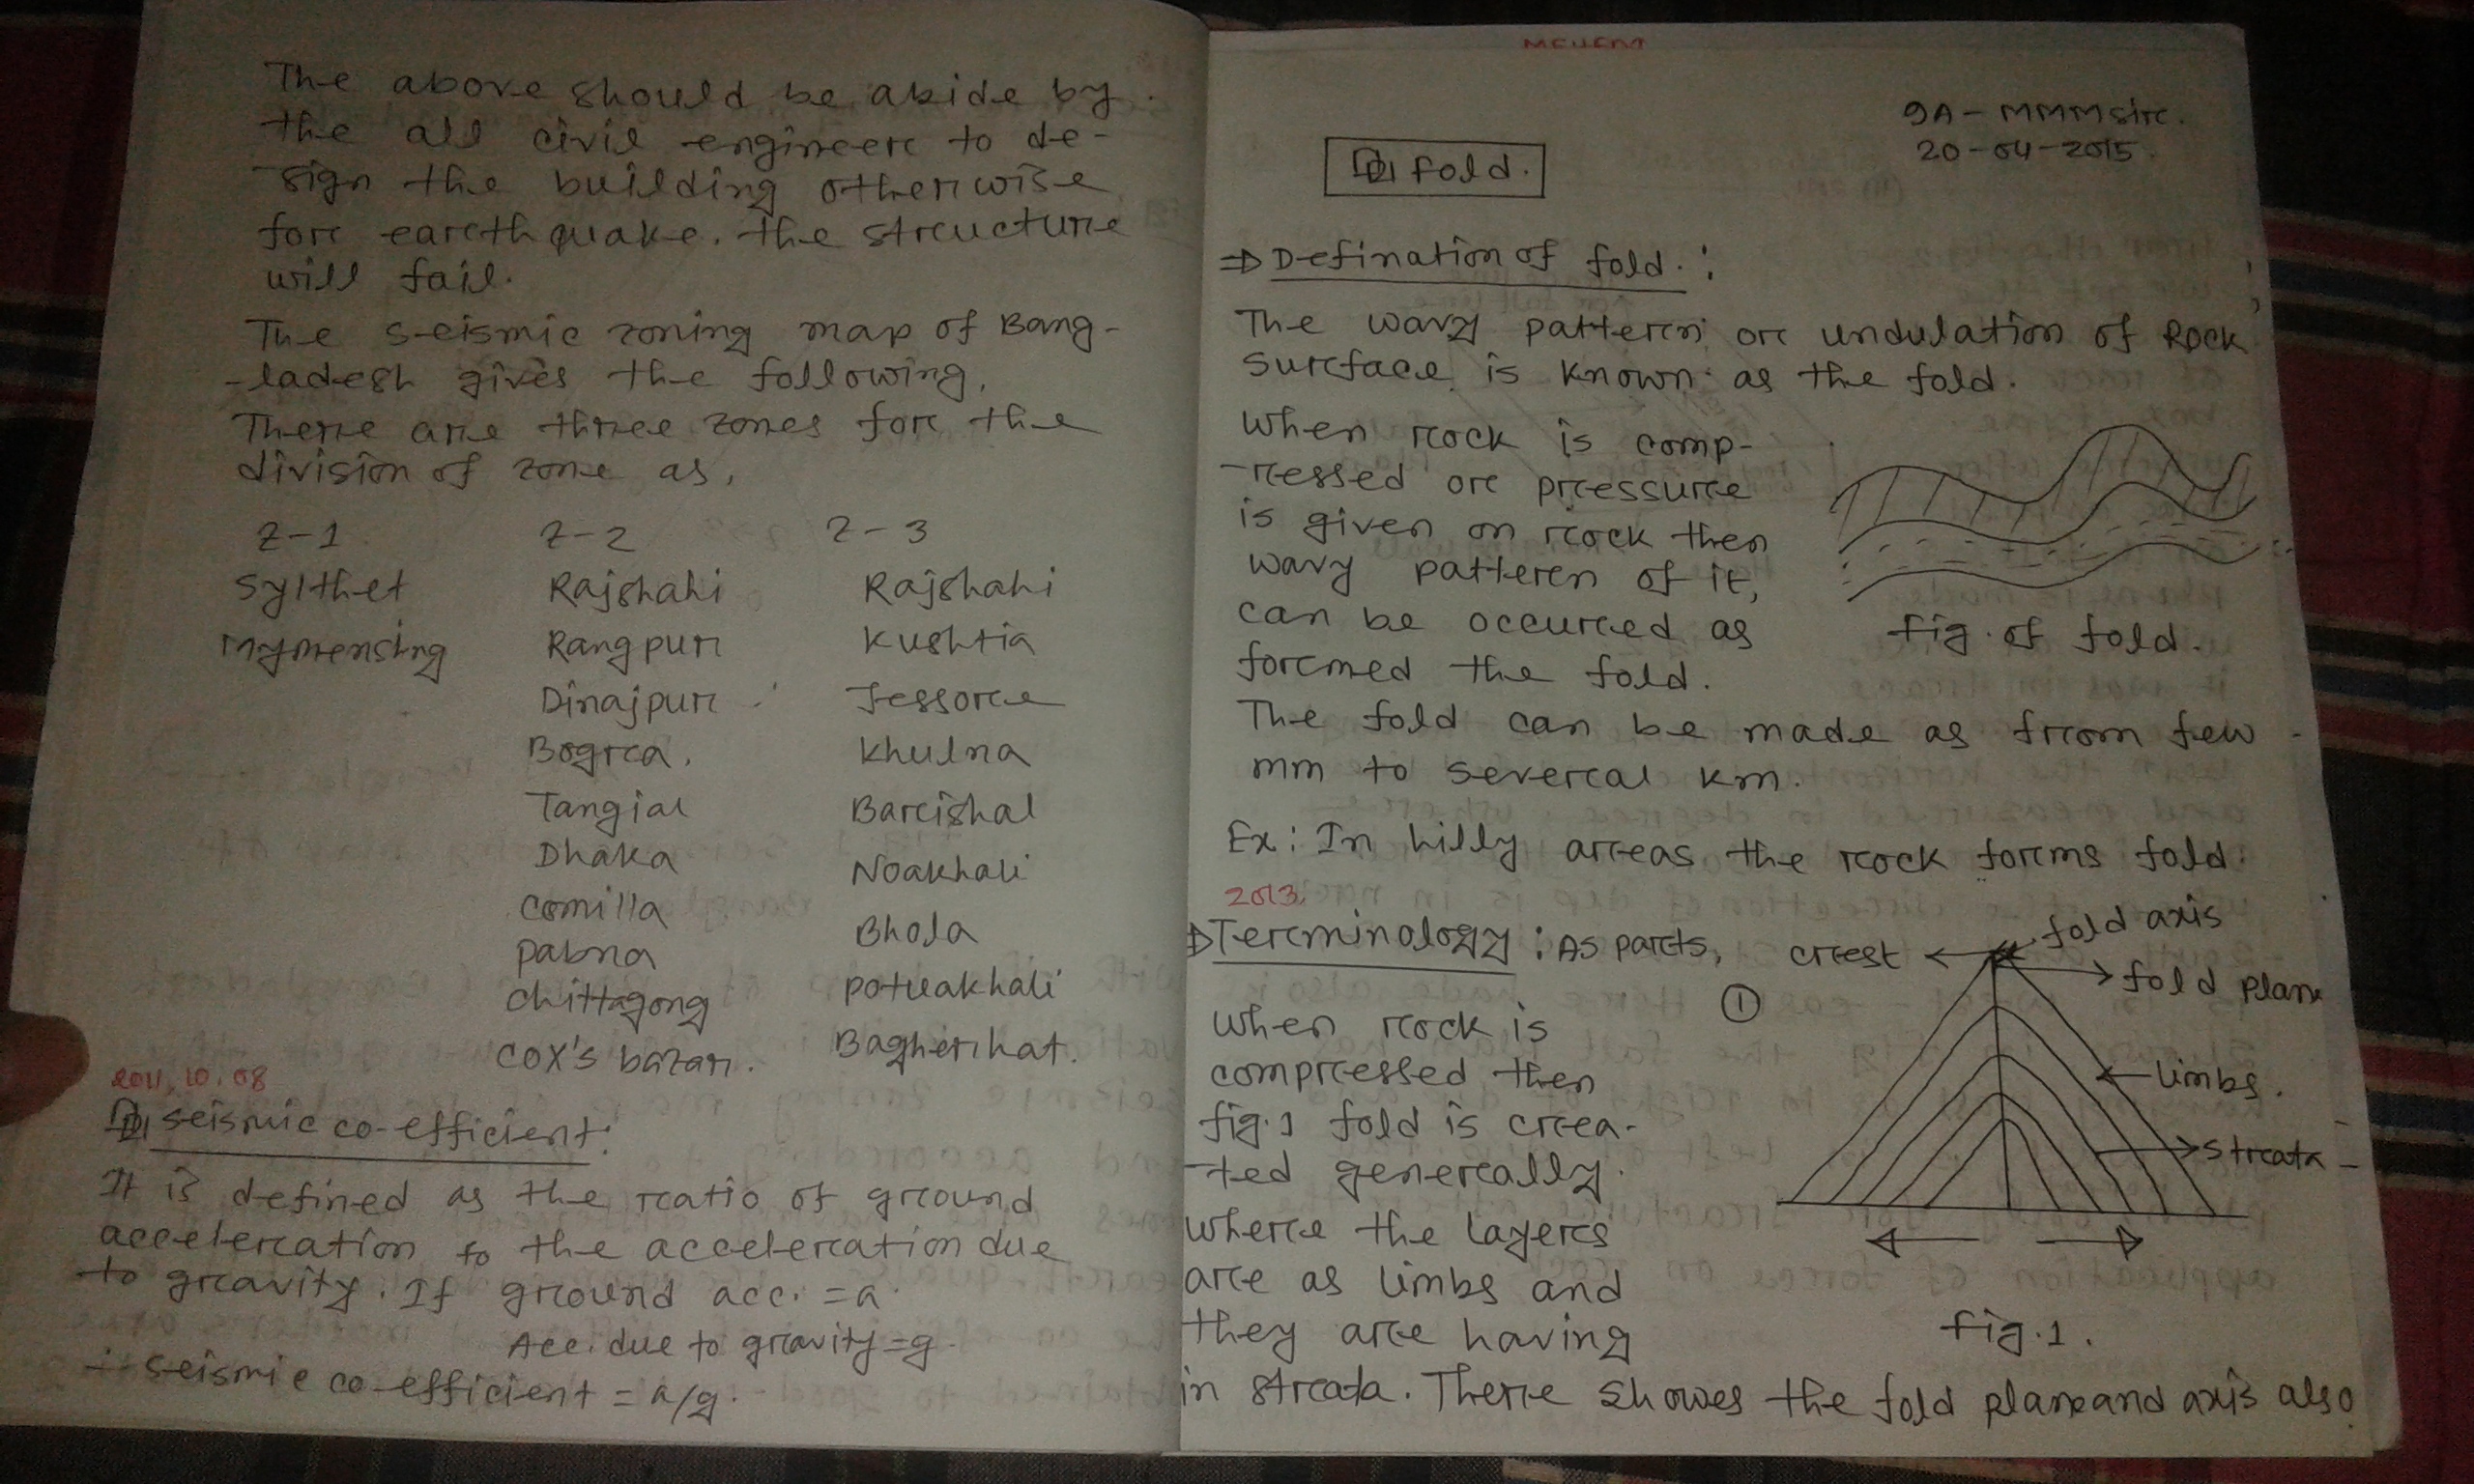 The above should be abide by
the all civil engineer to de-
-sign the building otherwise
for earthquake. the structure
will fail.
The seismic zoning map of Bang-
-ladesh gives the following.
There are three zones for the
division of zone as,
Z-1 Z-2 Z-3
Sylthet Rajshahi Rajshahi
Mymensing Rangpur Kushtia
Dinajpur Jessore
Bogra. Khulna
Tangial Barishal
Dhaka Noakhali
Comilla Bhola
Pabna Potuakhali
Chittagong Bagherhat.
Cox's bazar.
2011, 10, 08
seismic co-efficient:
It is defined as the ratio of ground
acceleration to the acceleration due
to gravity. If ground acc. = a
Acc. due to gravity = g.
∴ seismic co-efficient = a/g.
9A - MMM sir.
20-04-2015.
Fold.
⇒ Defination of fold. :
The wavy pattern or undulation of Rock
surface is known as the fold.
When rock is comp-
-ressed or pressure
is given on rock then
wavy pattern of it,
can be occured as
formed the fold.
Fig. of fold.
The fold can be made as from few
mm to several km.
Ex: In hilly areas the rock forms fold.
2013
⇒ Terminology: As parts,
crest
fold axis
fold plane
①
limbs.
strata
When rock is
compressed then
fig.1 fold is crea-
-ted generally.
where the layers
are as limbs and
they are having
Fig.1.
in strata. There showes the fold plane and axis also